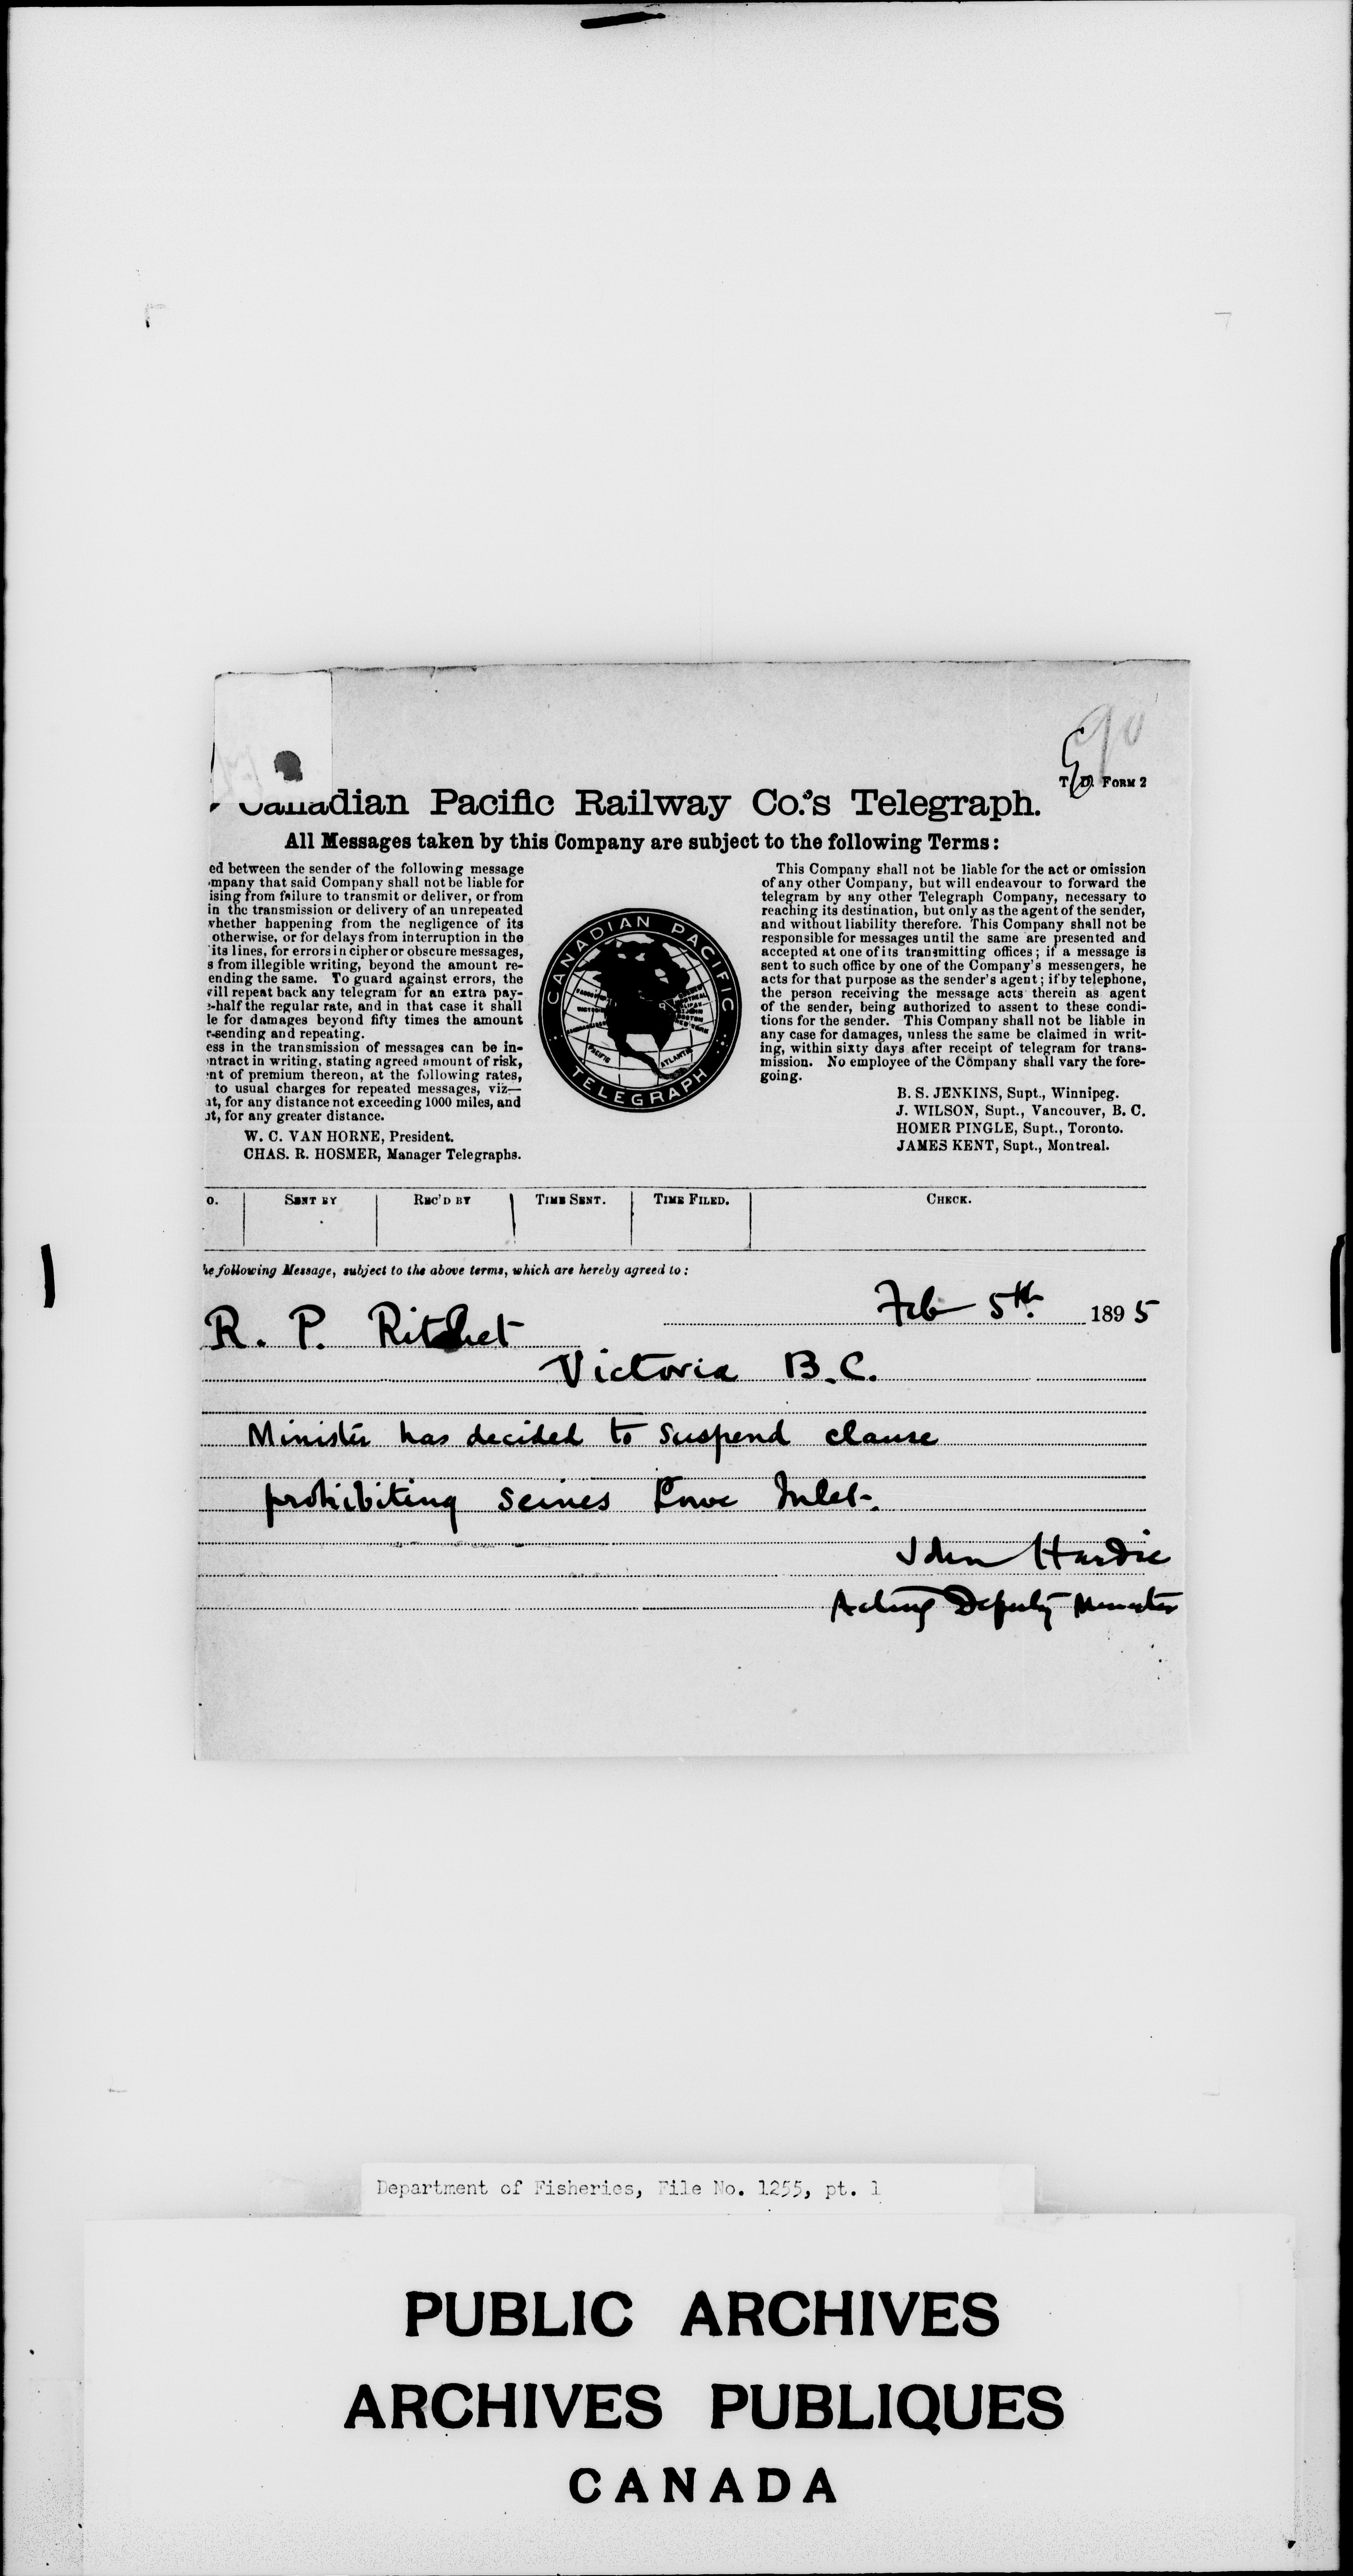 90
T. D. FORM 2
Canadian Pacific Railway Co.'s Telegraph.
All Messages taken by this Company are subject to the following Terms:
ed between the sender of the following message
mpany that said Company shall not be liable for
ising from failure to transmit or deliver, or from
in the transmission or delivery of an unrepeated
whether happening from the negligence of its
otherwise, or for delays from interruption in the
its lines, for errors in cipher or obscure messages,
s from illegible writing, beyond the amount re-
ending the same. To guard against errors, the
will repeat back any telegram for an extra pay-
e-half the regular rate, and in that case it shall
le for damages beyond fifty times the amount
r sending and repeating.
ess in the transmission of messages can be in-
ntract in writing, stating agreed amount of risk,
ent of premium thereon, at the following rates,
to usual charges for repeated messages, viz—
nt, for any distance not exceeding 1000 miles, and
nt, for any greater distance.
W. C. VAN HORNE, President.
CHAS. R. HOSMER, Manager Telegraphs.
CANADIAN PACIFIC
TELEGRAPH
PACIFIC
ATLANTIC
This Company shall not be liable for the act or omission
of any other Company, but will endeavour to forward the
telegram by any other Telegraph Company, necessary to
reaching its destination, but only as the agent of the sender,
and without liability therefore. This Company shall not be
responsible for messages until the same are presented and
accepted at one of its transmitting offices; if a message is
sent to such office by one of the Company's messengers, he
acts for that purpose as the sender's agent; if by telephone,
the person receiving the message acts therein as agent
of the sender, being authorized to assent to these condi-
tions for the sender. This Company shall not be liable in
any case for damages, unless the same be claimed in writ-
ing, within sixty days after receipt of telegram for trans-
mission. No employee of the Company shall vary the fore-
going.
B. S. JENKINS, Supt., Winnipeg.
J. WILSON, Supt., Vancouver, B. C.
HOMER PINGLE, Supt., Toronto.
JAMES KENT, Supt., Montreal.
O. SENT BY REC'D BY TIME SENT. TIME FILED. CHECK.
he following Message, subject to the above terms, which are hereby agreed to:
Feb 5th. 1895
R. P. Rithet
Victoria B.C.
Minister has decided to suspend clause
prohibiting seines Lowe Inlet.
John Hardie
Acting Deputy Minister
Department of Fisheries, File No. 1255, pt. 1
PUBLIC ARCHIVES
ARCHIVES PUBLIQUES
CANADA